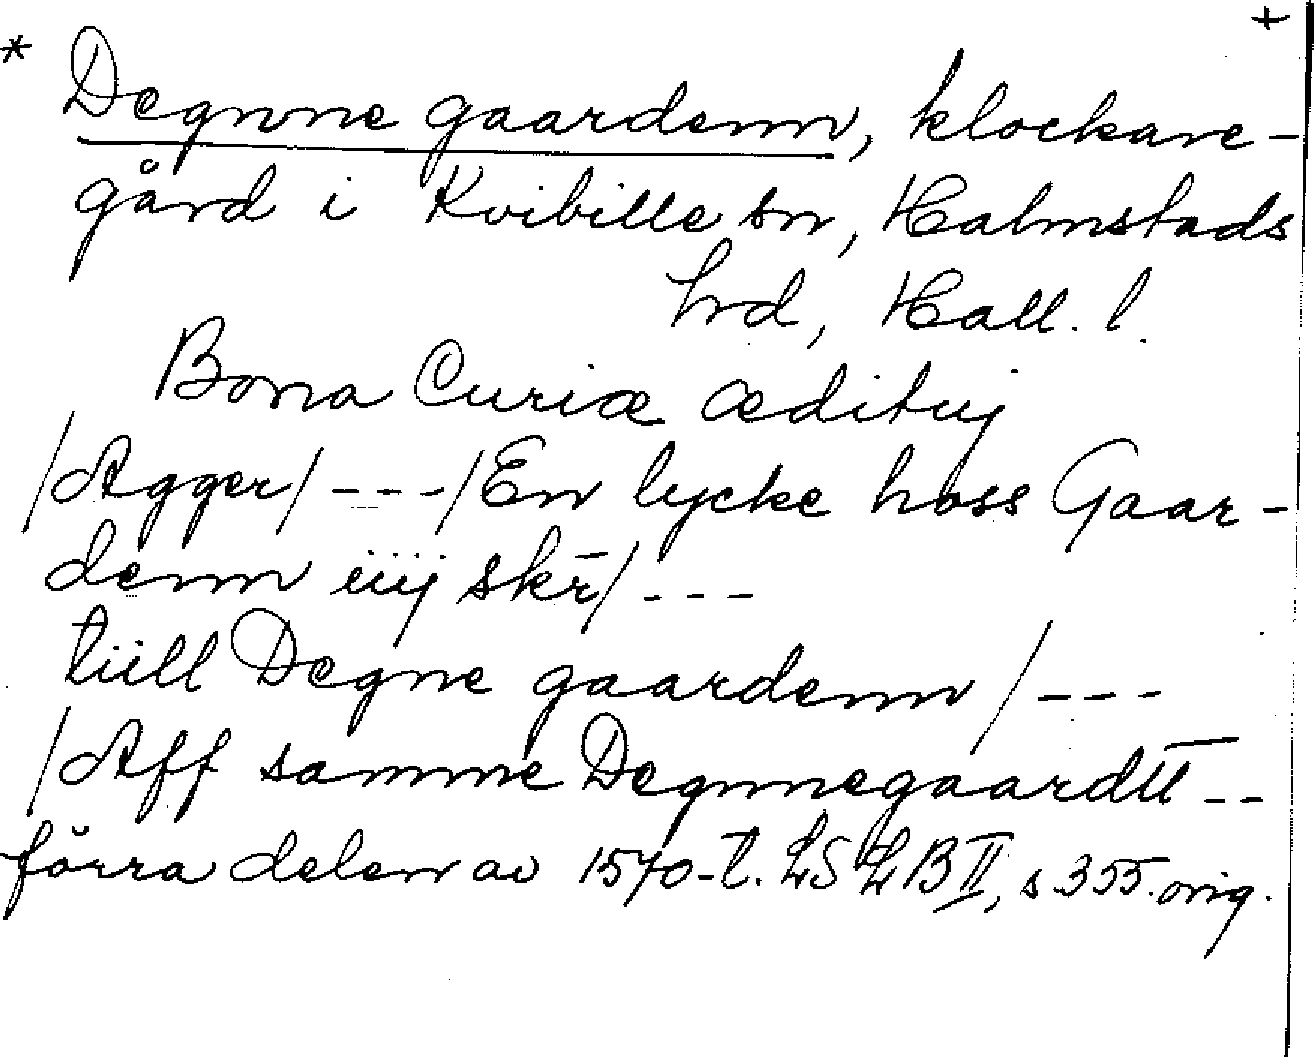 +
* Degnne gaardenn, klockare-
gård i Kvibille sn, Halmstads
hrd, Hall. l.
Bona Curiæ ædituj
/Agger/ - - - /En lycke hoss Gaar-
denn iiij skr̄/ - - -
tiill Degne gaardenn / - - -
/Aff samme Degnnegaardtt - -
förra delen av 1570-t. LSLB II, s 355. orig.